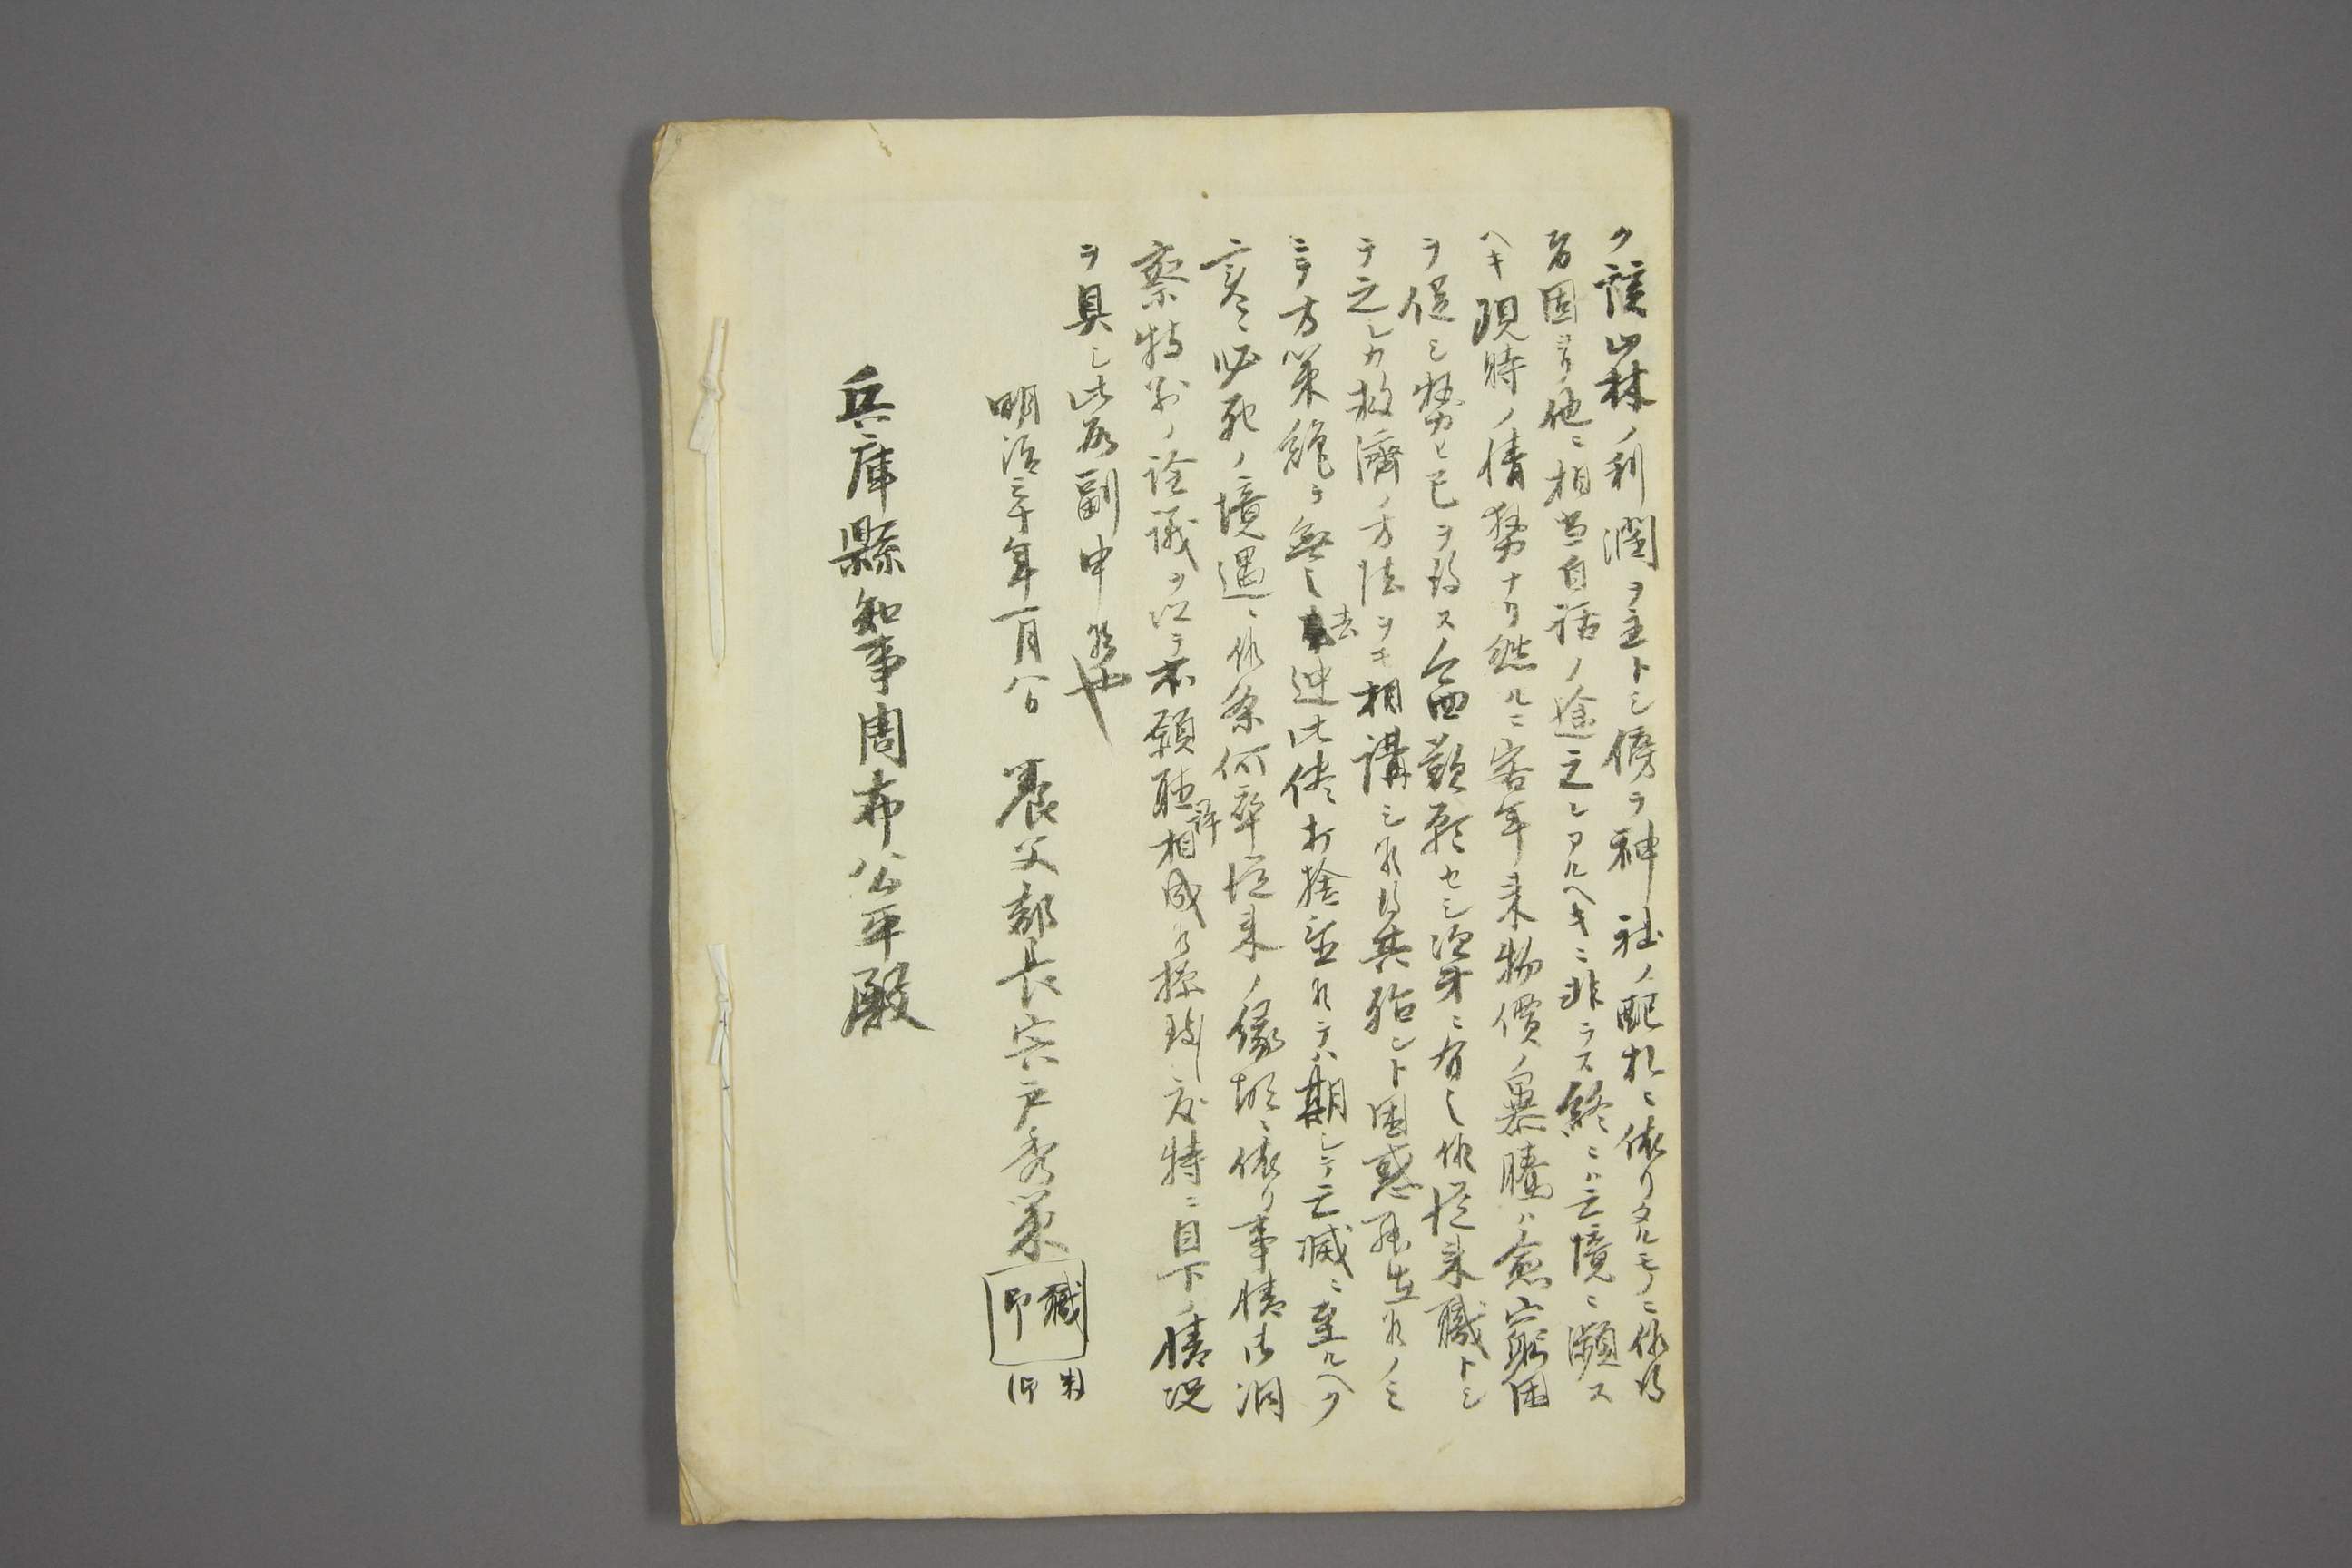 ク該山林ノ利潤ヲ主トシ傍ラ神社ノ配札ニ依リタルモノニ係ル
固ヨリ他ニ相当自活ノ途之レアルヘキニ非ラス終ニハ亡境ニ瀕ス
ヘキ現時ノ情勢ナリ然ルニ客年来物價ノ暴騰ハ愈窮困
ヲ促シ勢ヒ已ヲ得ス今回歎願セシ次第ニ有之候従来職トシ
テ之レカ救済ノ方法ヲモ相講シ其殆ント困惑罷在候ノミ
ニテ方策絶テ無之去迚此侭打捨置候テハ期シテ亡滅ニ至ルヘク
実ニ必死ノ境遇ニ候条何卒従来ノ縁故ニ依リ事情御洞
察特別ノ詮議ヲ以テ本願聴許相成候様致度特ニ目下ノ情況
ヲ具シ此段副申候也
明治三十年一月八日 養父郡長宍戸秀策 職印
兵庫縣知事周布公平殿